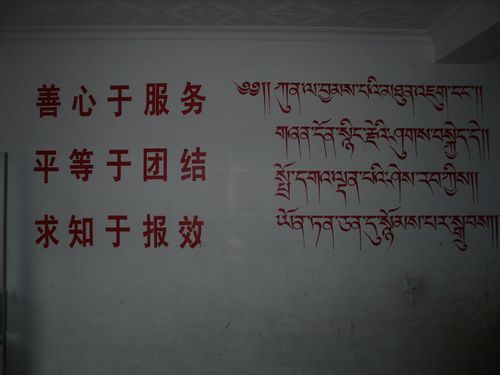 善心于服务
平等于团结
求知于报效
༄༅།། ཀུན་ལ་བྱམས་པའི་མཐུན་འཇུག་དང་།།
གཞན་དོན་སྙིང་རྗེའི་ཤུགས་བསྐྱེད་དེ།།
སྤྲོ་དགའ་ལྡན་པའི་ཤེས་རབ་ཀྱིས།།
ཡོན་ཏན་ཅན་དུ་སྙོམས་པར་སླུབས།།